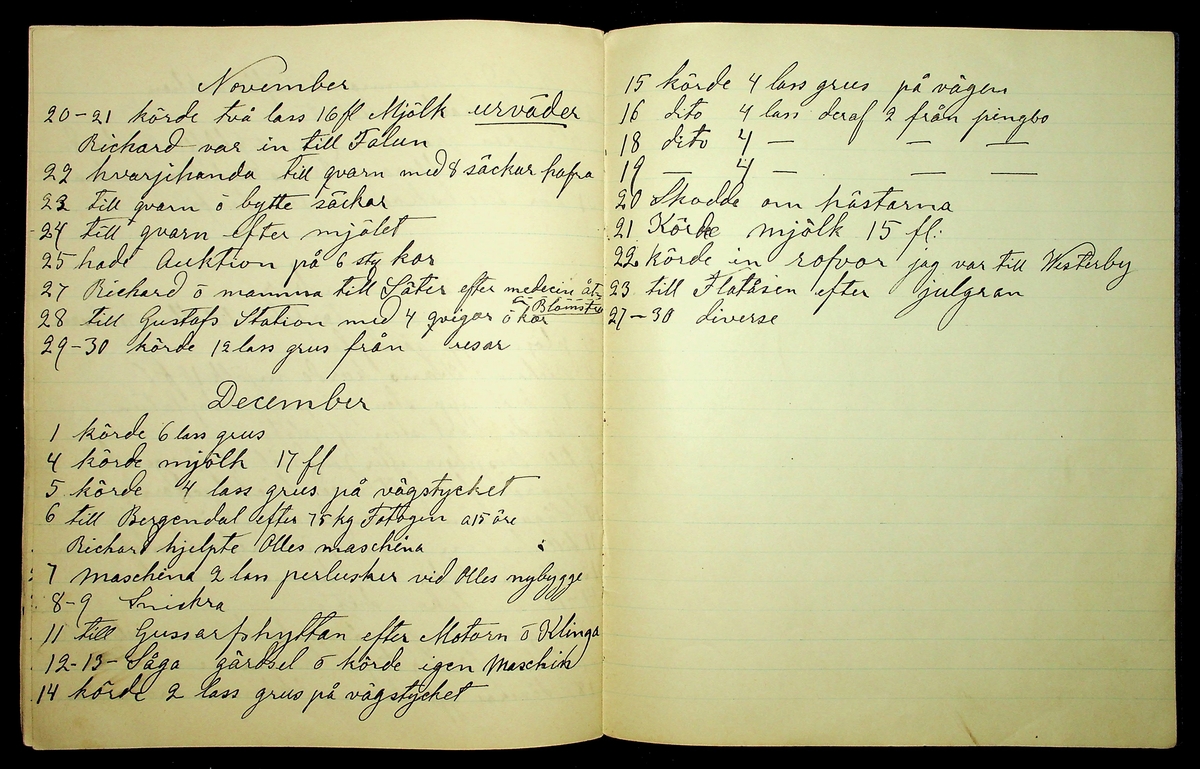 November
20-21 körde två lass 16 fl Mjölk urväder
Richard var in till Falun
22 hvarjihanda till qvarn med 8 säckar hafra
23 till qvarn ö bytte säckar
24 till qvarn efter mjölet
25 hade Auktion på 6 sty kor
27 Richard ö mamma till Säter efter medecin åt
Blomstra
28 till Gustafs Station med 4 qvigor ö kor
29-30 körde 12 lass grus från resar
December
1 körde 6 lass grus
4 körde mjölk 17 fl
5 körde 4 lass grus på vägstycket
6 till Bergendal efter 75 kg Fotogen a 15 öre
Richard hjelpte Olles maschina
7 maschina 2 lass vid Olles nybygge
8-9 Snickra
11 till Gussarfshyttan efter Motorn ö Klinga
12-13- Såga gärdsel ö körde igen Maschin
14 körde 2 lass grus på vägstycket
15 körde 4 lass grus på vägen
16 dito 4 lass deraf 2 från pingbo
18 dito 4 — — —
19 — 4 — — —
20 Skodde om hästarna
21 Körde mjölk 15 fl:
22 körde in rofvor jag var till Westerby
23 till Flatåsen efter julgran
27-30 diverse